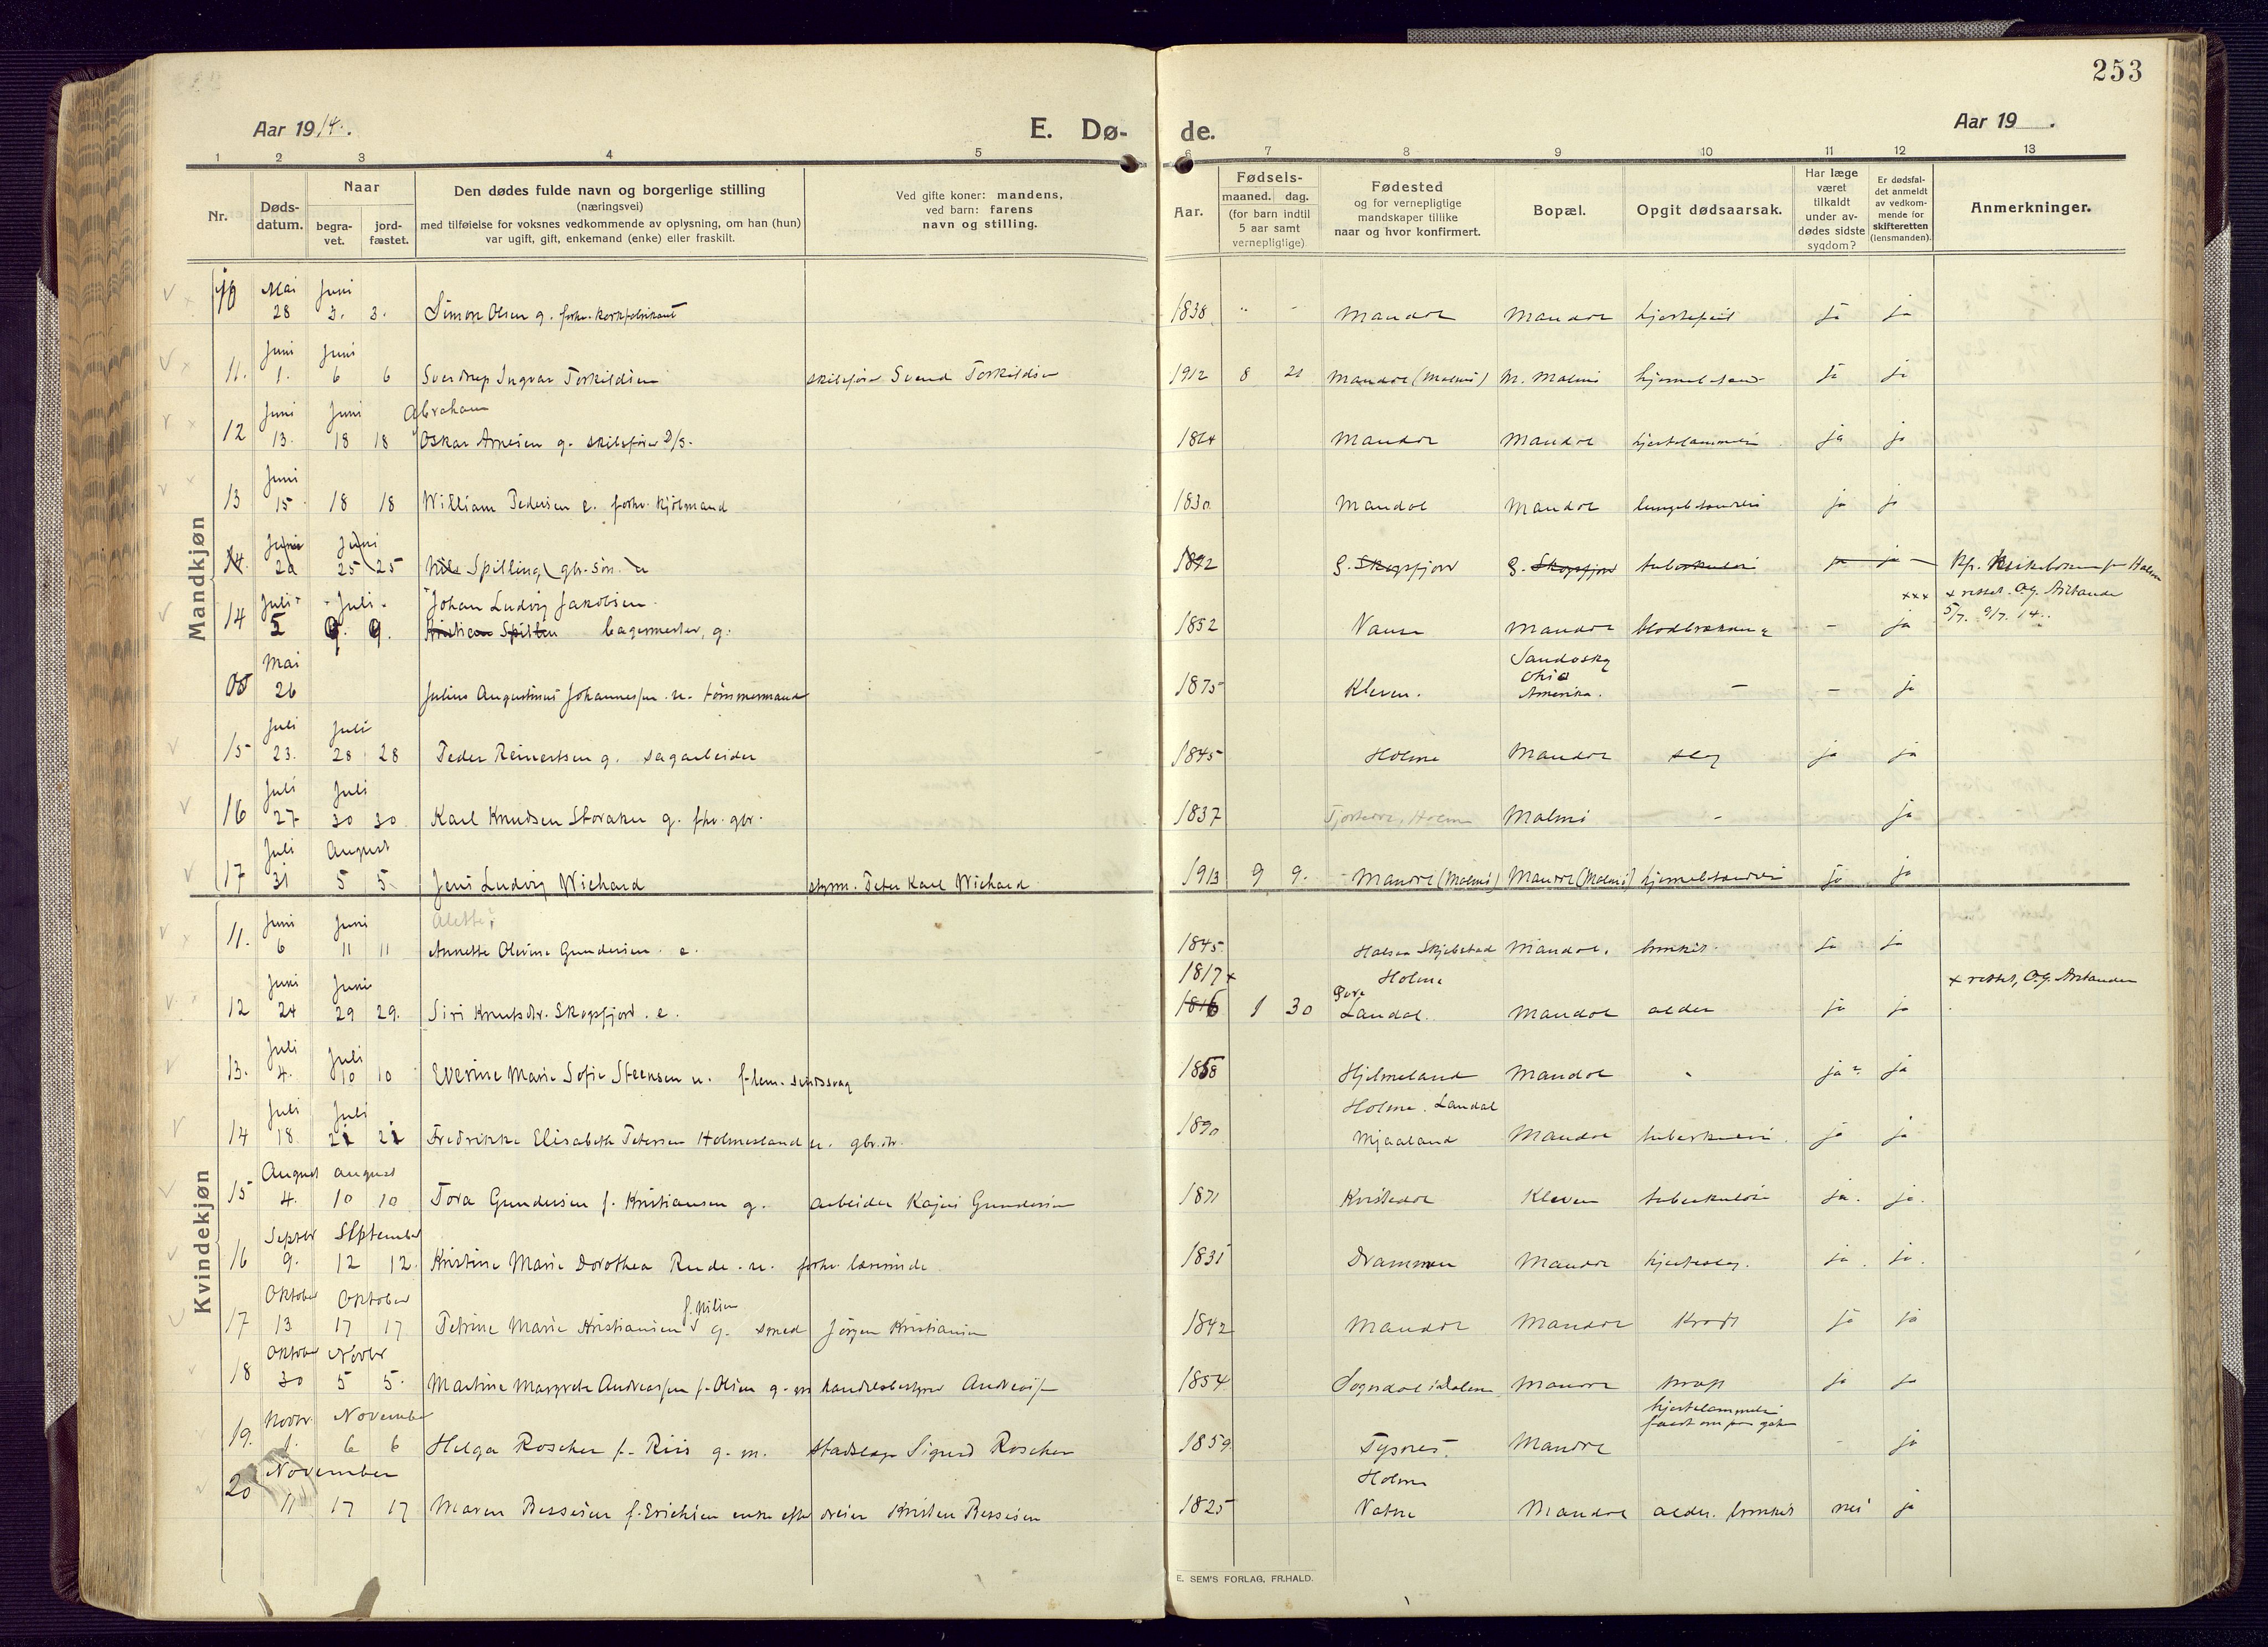 253
Aar 1914.
E. Dø-
de.
Aar 19 .
1 2 3 4 5 6 7 8 9 10 11 12 13
Nr.
Døds-
datum.
Naar
begra-
vet.
jord-
fæstet.
Den dødes fulde navn og borgerlige stilling
(næringsvei)
med tilføielse for voksnes vedkommende av oplysning, om han (hun)
var ugift, gift, enkemand (enke) eller fraskilt.
Ved gifte koner: mandens,
ved barn: farens
navn og stilling.
Aar.
Fødsels-
maaned. dag.
(for barn indtil
5 aar samt
vernepligtige)
Fødested
og for vernepligtige
mandskaper tillike
naar og hvor konfirmert.
Bopæl.
Opgit dødsaarsak.
Har læge
været
tilkaldt
under av-
dødes sidste
sygdom?
Er dødsfal-
det anmeldt
av vedkom-
mende for
skifteretten
(lensmanden).
Anmerkninger.
Mandkjøn
10 Mai Juni
28 3. 3. Simon Olsen g. forhv. korkfabrikant 1838 Mandal Mandal hjertefeil ja ja
11. Juni Juni
1. 6 6 Sverdrup Ingvar Torkildsen skibsfører Svend Torkildsen 1912 8 21 Mandal (Malmø) M. Malmø ja ja
12 Juni Juni Abraham
13. 18 18 Oskar Arnesen g. skibsfører D/S. 1864 Mandal Mandal hjertelammelse ja ja
13 Juni
15 18 18 William Pedersen e. forhv. Kjølmand 1830 Mandal Mandal lungebetændelse ja ja
14. Juni Juni
20 25 25 Nils Spilling gbr. søn. u 1892 S. Skogsfjord S. Skogsfjord tuberkulose ja ja Kfr. Kirkeboken for Halsaa
14 Juli Juli Johan Ludvig Jakobsen xxx x rettet. O.G. Aistande
5 9. 9. Kristian Spillin bagermester, g. 1852 Vanse Mandal - ja 5/7. 9/7. 14.
05 Mai Sandosky
26 Julius Augustinus Johannessen u. tømmermand 1875 Kleven. Ohio Amerika. - - ja
15 Juli Juli
23. 28 28 Peder Reinertsen g. sagarbeider 1845 Holme Mandal slag ja ja
16 Juli Juli
27 30 30 Karl Knudsen Storaker g. fhv. gbr. 1837 Holme Malmø - ja
17 Juli August
31 5 5 Jens Ludvig Wichard styrm. Peter Karl Wichard 1913 9 9. Mandal (Malmø) Mandal (Malmø) ja ja
Kvindekjøn
11. Juni Juni Alette?
6 11 11 Annette Olevine Gundersen. e. 1845. Halsaa Skjebstad Mandal. bronkit. ja ja
1817x Holme x rettet, O.G. Aistanden
12 Juni Juni
24 29 29. Siri Knutsdtr. Skogsfjord. e. 1816 1 30 Landal. Mandal alder ja ja
13. Juli Juli
4. 10 10 Everine Marie Sofie Steensen u. f. lem. sindssvag 1858 Hjelmeland Mandal - ja? ja
14 Juli Juli Holme. Laudal
18. 21 21 Fredrikke Elisabeth Petersen Holmesland u. gbr. dtr. 1890 Mjaaland Mandal tuberkulose. ja ja
15 August august
4. 10 10 Tora Gundersen f. Kristiansen g. arbeider Kajus Gundersen 1871 Kvistedal Kleven tuberkulose ja. ja.
16 Septbr September
9. 12 12. Kristine Marie Dorothea Rude. u. forhv. lærerinde 1831 Drammen Mandal hjerteslag. ja. ja.
17 Oktober Oktober f. Nilsen
13 17 17 Petrine Marie Kristiansen g. smed Jørgen Kristiansen 1842 Mandal Mandal Kræft ja ja
18 Oktober Novbr
30 5 5. Martine Margrete Andreassen f. Olsen g. m handelsbestyrer Andreassen 1854 Sogndal i Dalene Mandal kræft ja ja
19. Novbr. November hjertelammelse
1. 6 6 Helga Roscher f. Riis g. m. stadslæge Sigurd Roscher 1859 Tysnes. Mandal faldt om paa gaten - ja
20 November Holme
11 17 17 Maren Bessesen f. Erichsen enke efter dreier Kristen Bessesen 1825 Vatne Mandal alder. bronkit nei ja
E. SEM'S FORLAG, FR.HALD.